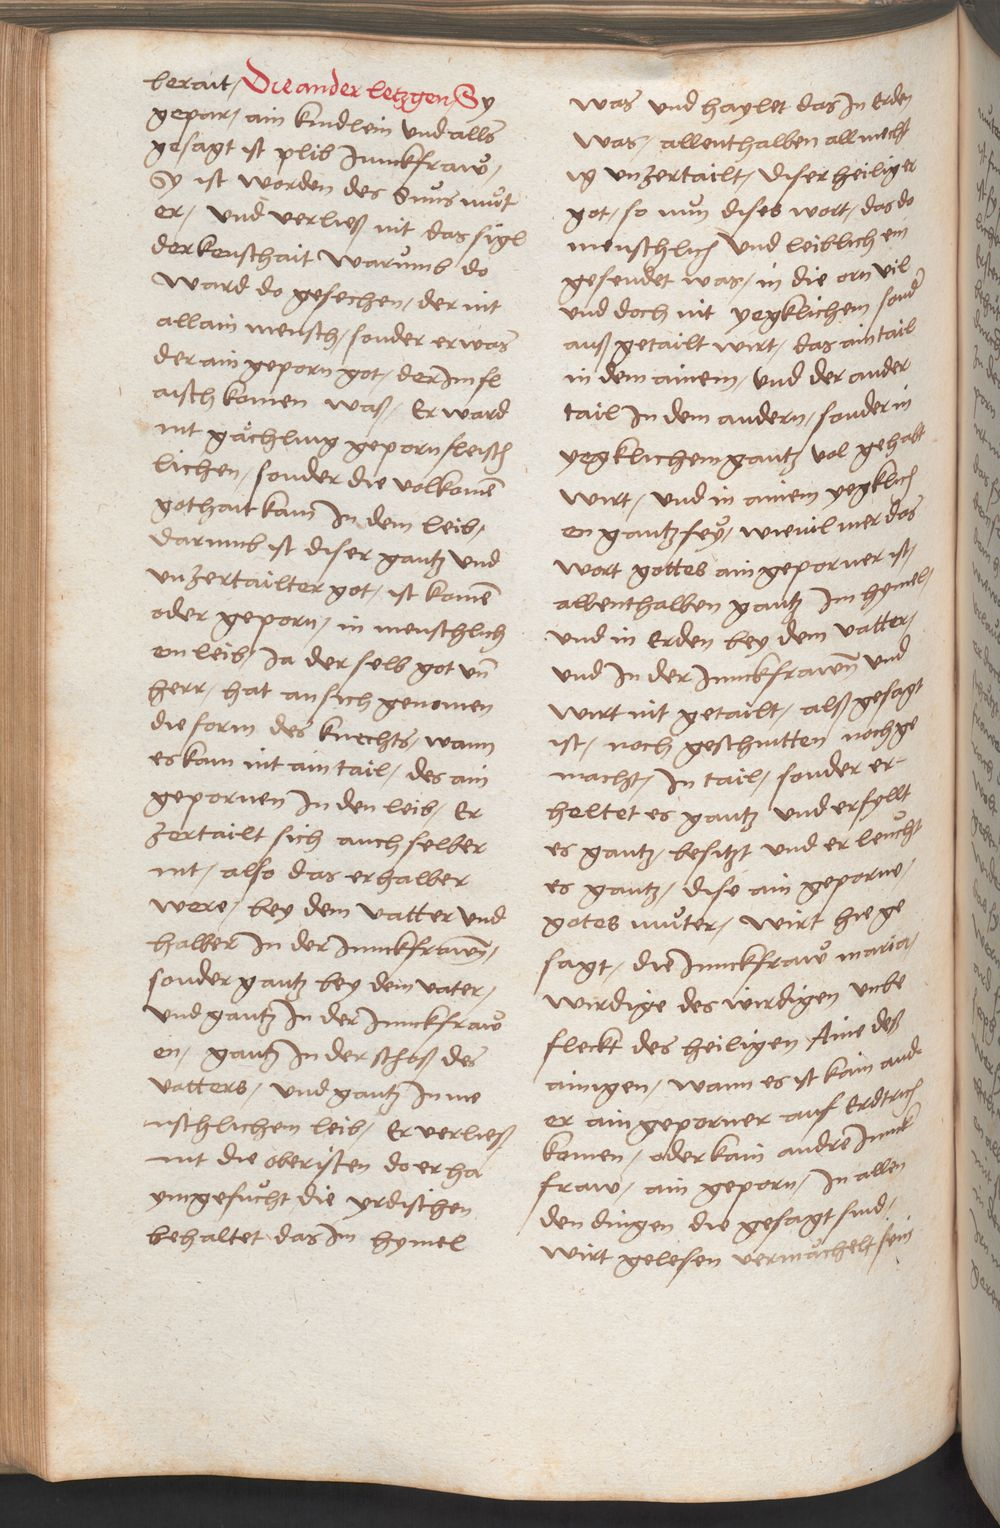 berait, Die ander letzgen, Sy
gepar, ain kindlein und alls
gesagt ist plib Junckfraw,
Sy ist worden des Suns mut
er, und verließ nit das sigl
der keuschait warumb do
ward do gesechen, der nit
allain mensch, sonder er was
der ain geporn got, der im fl
aisch komen waß, Er ward
nit gächling geporn fleisch
lichen, sonder die volkomen̄
gothait kam In dem leib,
darumb ist diser gantz und
unzertailter got, ist komen̄
oder geporn, in menschlich
en leib, Ja der selb got un̄
herr, hat an sich genomen
die form des knechts, wann
es kam nit ain tail, des ain
gepornen In den leib, Er
zertailt sich auch selber
nit, also das er halber
were, bey dem vatter und
halber In der Junckfrawen̄,
sonder gantz bey dem vater,
und gantz In der Junckfraw
en, gantz In der schoß des
vatters, und gantz In me
nschlichen leib, Er verließ
nit die obersten do er ha
ymgesucht die yrdischen
behaltet das Im hymel
was und haylet das In Erden
was, allenthalben allmecht
ig unzertailt, diser heiliger
got, so nun dises wort, das do
menschlich und leiblich ein
gesendet was, in die orn vil
und doch nit yegklichem sonder
auß getailt wirt, das ain tail
in dem ainem, und der ander
tail In dem andern, sonder in
yegklichem gantz vol gehabt
wirt, und in ainem yegklich
en gantz sey, wievil mer das
wort gottes ain geporner ist,
albenthalben gantz Im hymel,
und in Erden bey dem vatter,
und In der Junckfrawen̄ und
wirt nit getailt, alß gesagt
ist, noch geschnitten noch ge
macht, In tail, sonder er-
heltet es gantz und erfyllt
es gantz, besitzt und erleucht
es gantz, dise ain geporne,
gotes muter, wirt hie ge
sagt, die Junckfraw maria,
wirdige des wirdigen unbe
fleckt des heiligen Aine deß
ainigen, wann es ist kain and
er ain geporner auf Erdtrich
komen, oder kain andre Junck
fraw, ain geporn, In allen
den dingen die gesagt sind,
wirt gelesen vermächelt sein